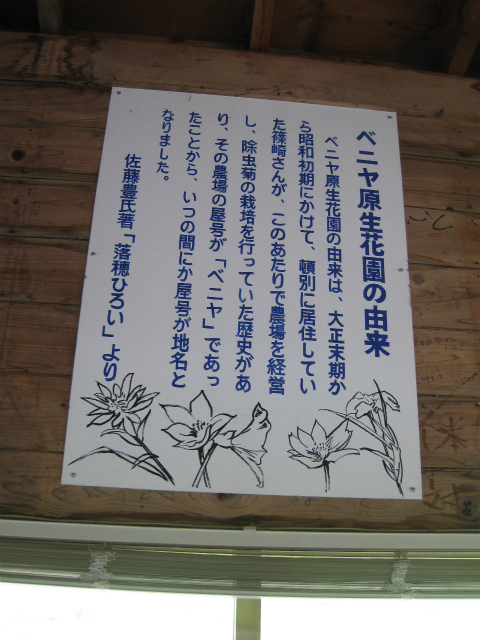 ベニヤ原生花園の由来
ベニヤ原生花園の由来は、大正末期か
ら昭和初期にかけて、頓別に居住してい
た篠崎さんが、このあたりで農場を経営
し、除虫菊の栽培を行っていた歴史があ
り、その農場の屋号が「ベニヤ」であっ
たことから、いつの間にか屋号が地名と
なりました。
佐藤豊氏著「落穂ひろい」より